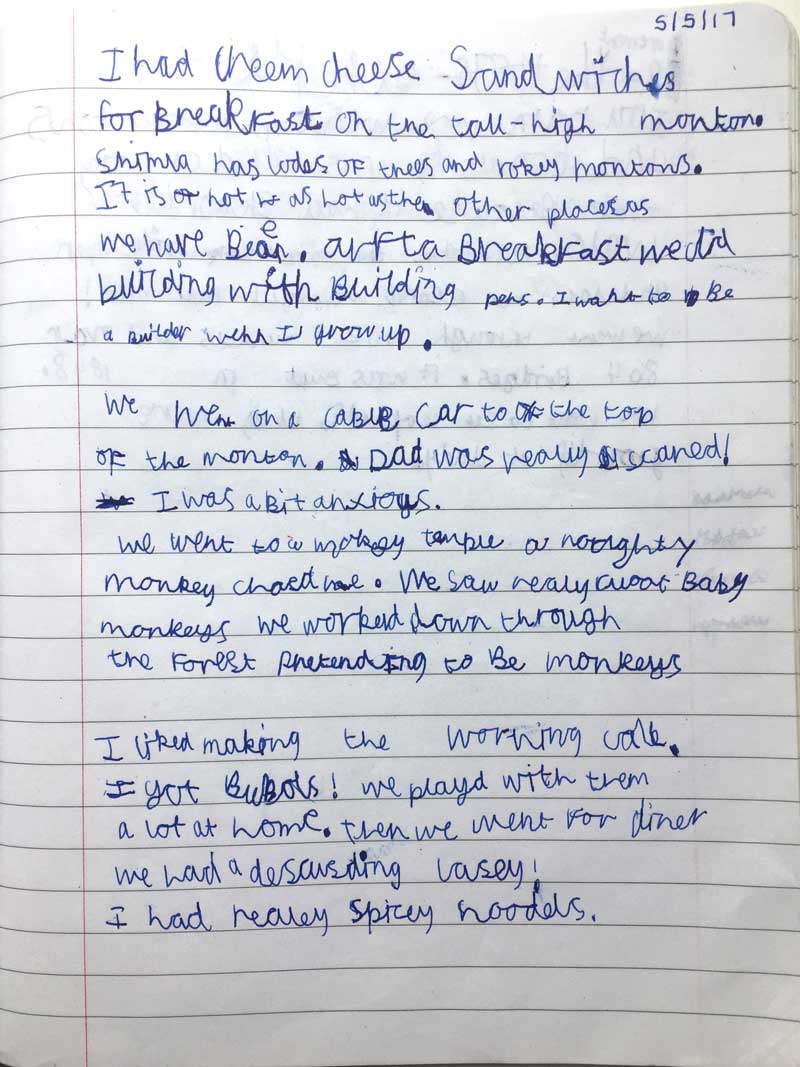 5/5/17
I had Cheem cheese Sandwitches
for Breakfast on the tall-high monton.
Shimla has lodes of trees and rokey montons.
It is not as hot as the other places as
we have Been. arfta Breakfast we did
building with Building pens. I want to Be
a Builder wehn I grow up.
We went on a cable car to the top
of the monton. Dad was really scared!
I was a Bit anxioys.
we went to a mokey temple a noughty
monkey chaed me. We saw realy cwoot Baby
monkeys we worked down through
the Forest Pretending to Be monkeys
I liked making the worning walk.
I got Bubols! we playd with them
a lot at home. then we went For diner
we had a descusding lasey!
I had realey spicey noodels.